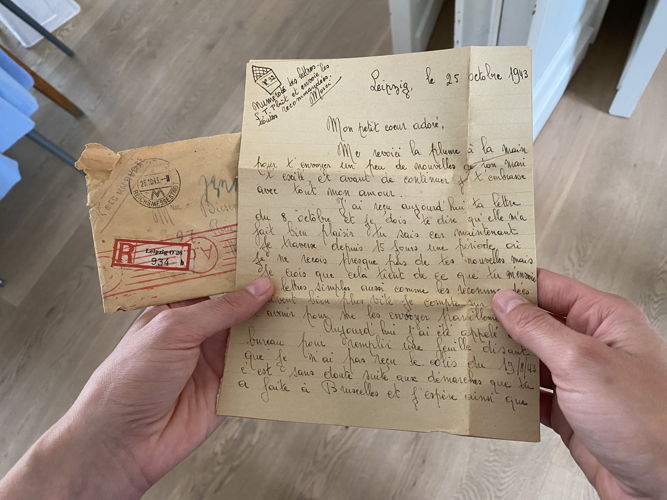 N° 32
Numérote tes lettres
S.T. Plait et envoie les
toutes recommandées
Merci
Leipzig, le 25 octobre 1943
Mon petit coeur adoré,
Me revoici la plume à la main
pour t'envoyer un peu de nouvelles de ton mari
et avant de continuer je t'embrasse
avec tout mon amour.
J'ai reçu aujourd'hui ta lettre
du 8 octobre et je dois te dire qu'elle m'a
fait bien plaisir tu sais car maintenant
je traverse depuis 15 jours une période où
je ne reçois presque pas de tes nouvelles mais
je crois que cela tient de ce que tu m'envoies
lettres simples aussi comme les recommandées
bien plus vite je compte sur
pour me les envoyer
Aujourd'hui j'ai été appelé
bureau pour remplir une feuille disant
que je n'ai pas reçu le colis du 13/8/43
c'est sans doute suite aux demarches que tu
a faite à Bruxelles et j'espère ainsi que
26.10.43.
REICHSMESSESTADT
R
Leipzig O 28
934